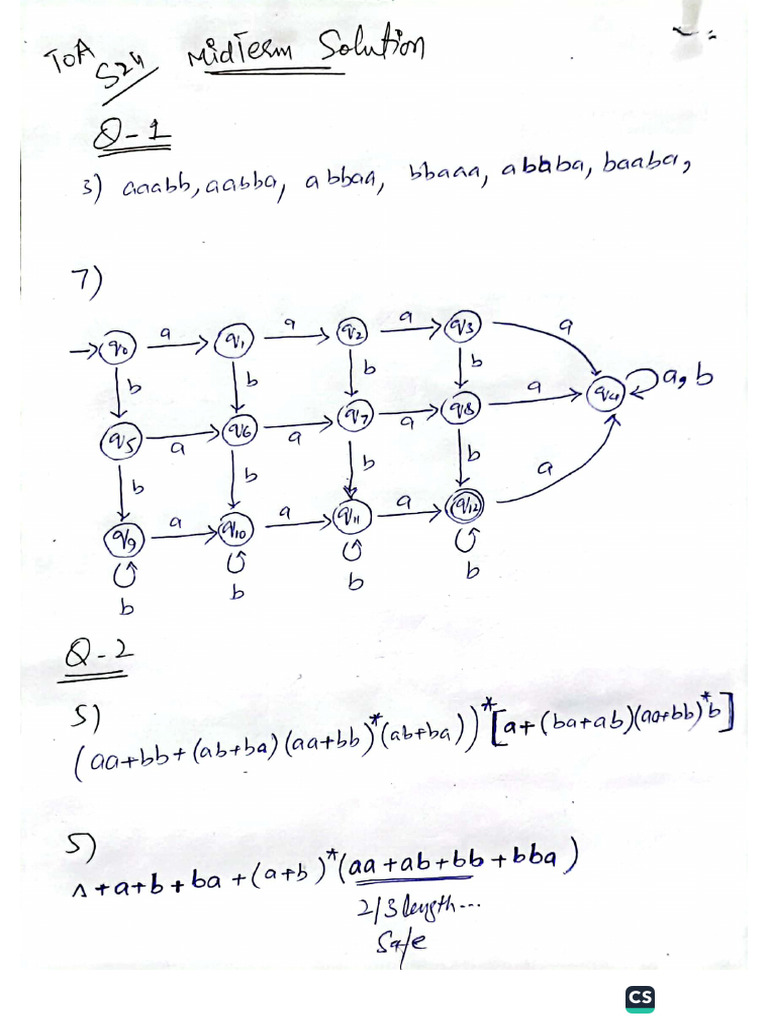 TOA S24 MidTerm Solution
Q-1
3) aaabb, aabba, abbaa, bbaaa, abbba, baaba,
7)
q0 a q1 a q2 a q3 a
b b b b
q5 a q6 a q7 a q8 a q4 a, b
b b b b
q9 a q10 a q11 a q12 a
b b b b
Q-2
5)
(aa+bb+(ab+ba)(aa+bb)*(ab+ba))*[a+(ba+ab)(aa+bb)*b]
5)
^+a+b+ba+(a+b)*(aa+ab+bb+bba)
2/3 length...
Safe
CS